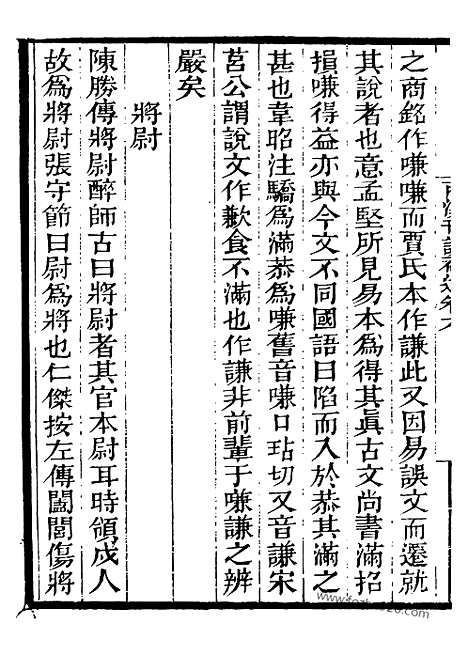 之商銘作嗛嗛而賈氏本作謙此又因易誤文而遷就
其說者也意孟堅所見易本為得其眞古文尚書滿招
損嗛得益亦與今文不同國語曰陷而入於恭其滿之
甚也韋昭注驕為滿恭為嗛舊音嗛口玷切又音謙宋
莒公謂說文作歉食不滿也作謙非前輩于嗛謙之辨
嚴矣
將尉
陳勝傳將尉醉師古曰將尉者其官本尉耳時領戍人
故為將尉張守節曰尉為將也仁傑按左傳闔閭傷將